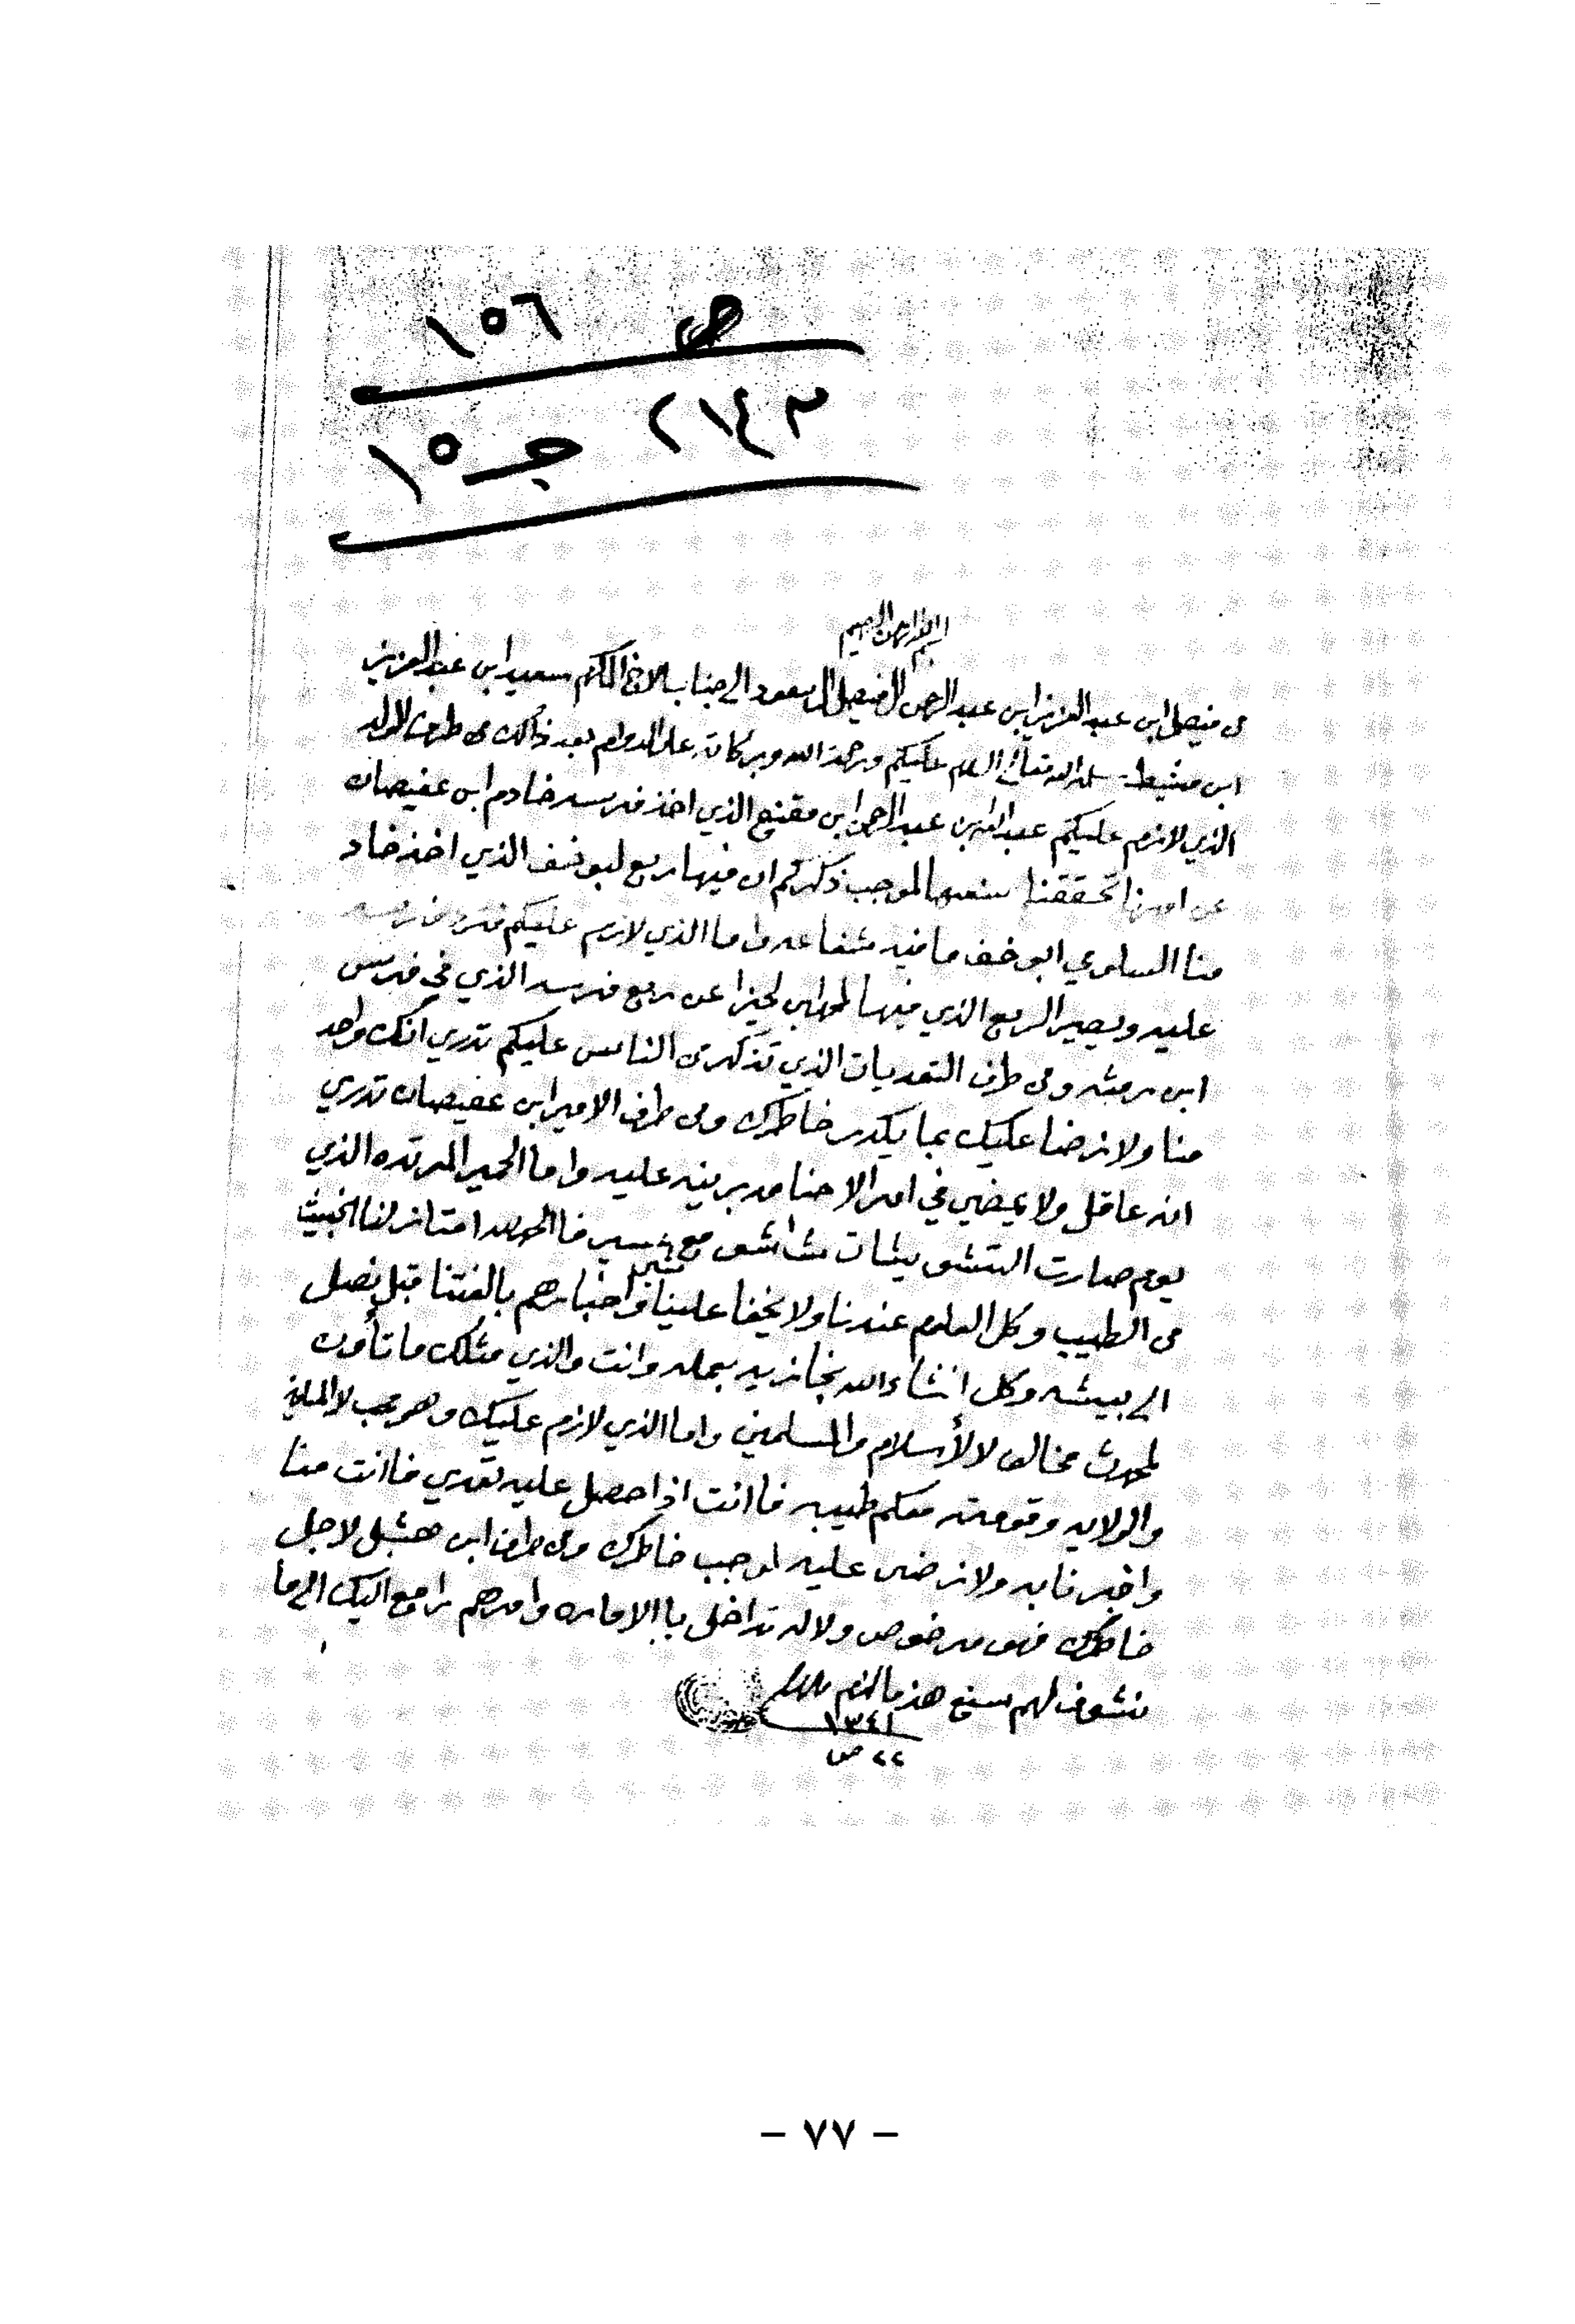 ص ١٥٦
٢١٤٣ جـ ١٥
بسم الله الرحمن الرحيم
من فيصل ابن عبد العزيز ابن عبد الرحمن ال فيصل ال سعود الى جناب الاخ المكرم سعيد ابن عبد العزيز
ابن مشيط سلمه الله تعالى السلام عليكم ورحمة الله وبركاته على الدوام بعد ذالك من طرف الولد
الذي لازم عليكم عبد الله ابن عبد الرحمن ابن مقنع الذي اخذ فرسه خادم ابن عفيصان
عن تحققنا الموجب ذكركم ان فيها ربع لبو خف الذي اخذ خاد
منا السلوي ابو خف ما فيه شفاعه واما الذي لازم عليكم
عليه ويصير الربع الذي فيها عن ربع فرسه الذي في فرس
ابن رمثه ومن طرف التعديات الذي تذكر من الناس عليكم تدري انك واحد
منا ولا نرضا عليك بما يكدر خاطرك ومن طرف الامير ابن عفيصان تدري
انه عاقل ولا يمضي في امر الا حنا مدبرينه عليه واما الحمير المرتده الذي
يوم صارت التشويشات مع فا الحمد لله امتاز لنا الخبيث
من الطيب وكل العلوم عندنا ولا يخفا علينا واخبارهم بالفتنا قبل نصل
الى بيشه وكل انشاء الله نجازيه بعمله وانت والذي مثلك ما تأون
لمحدث مخالف لالأسلام والمسلمين واما الذي لازم عليك وهو محب لا المله
والولايه وقومته معكم طيبه فا انت اذا حصل عليه تعدي فا انت منا
واخبرنا به ولا نرضى عليه لموجب خاطرك ومن طرف ابن هشبل لاجل
خاطرك فهو مرخوص ولا له تداخل با الاماره وامرهم راجع اليك الى ما
نشوف لهم سنع هذ مالزم والسلام
١٣٤١
٢٢ ص
- ٧٧ -